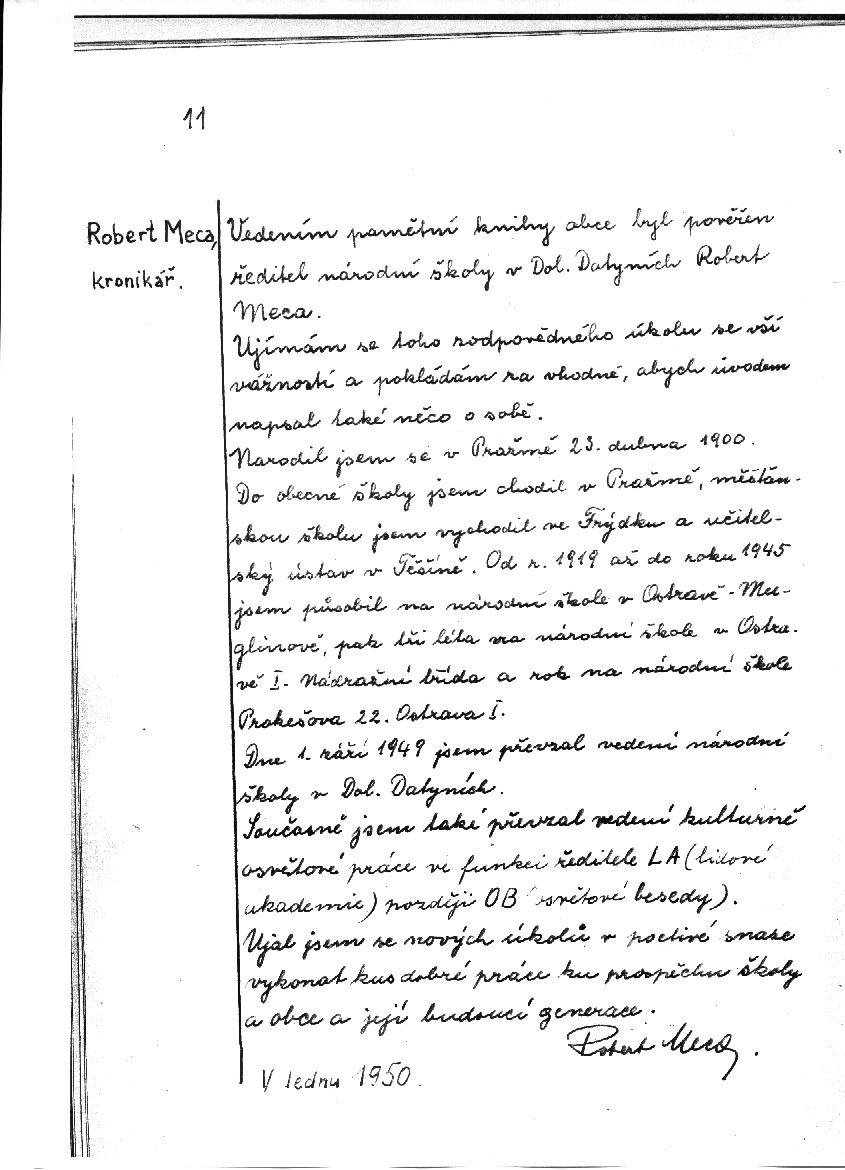 11
Robert Meca,
kronikář.
Vedením pamětní knihy obce byl pověřen
ředitel národní školy v Dol. Datyních Robert
Meca.
Ujímám se toho zodpovědného úkolu se vší
vážností a pokládám za vhodné, abych úvodem
napsal také něco o sobě.
Narodil jsem se v Pražmě 23. dubna 1900.
Do obecné školy jsem chodil v Pražmě, měštan-
skou školu jsem vychodil ve Frýdku a učitel-
ský ústav v Těšíně. Od r. 1919 až do roku 1945
jsem působil na národní škole v Ostravě-Mu-
glinově, pak tři léta na národní škole v Ostra-
vě I. Nádražní třída a rok na národní škole
Prokešova 22. Ostrava I.
Dne 1. září 1949 jsem převzal vedení národní
školy v Dol. Datyních.
Současně jsem také převzal vedení kulturně
osvětové práce ve funkci ředitele LA (lidové
akademie) později OB (osvětové besedy).
Ujal jsem se nových úkolů v poctivé snaze
vykonat kus dobré práce ku prospěchu školy
a obce a její budoucí generace.
Robert Meca.
V lednu 1950.